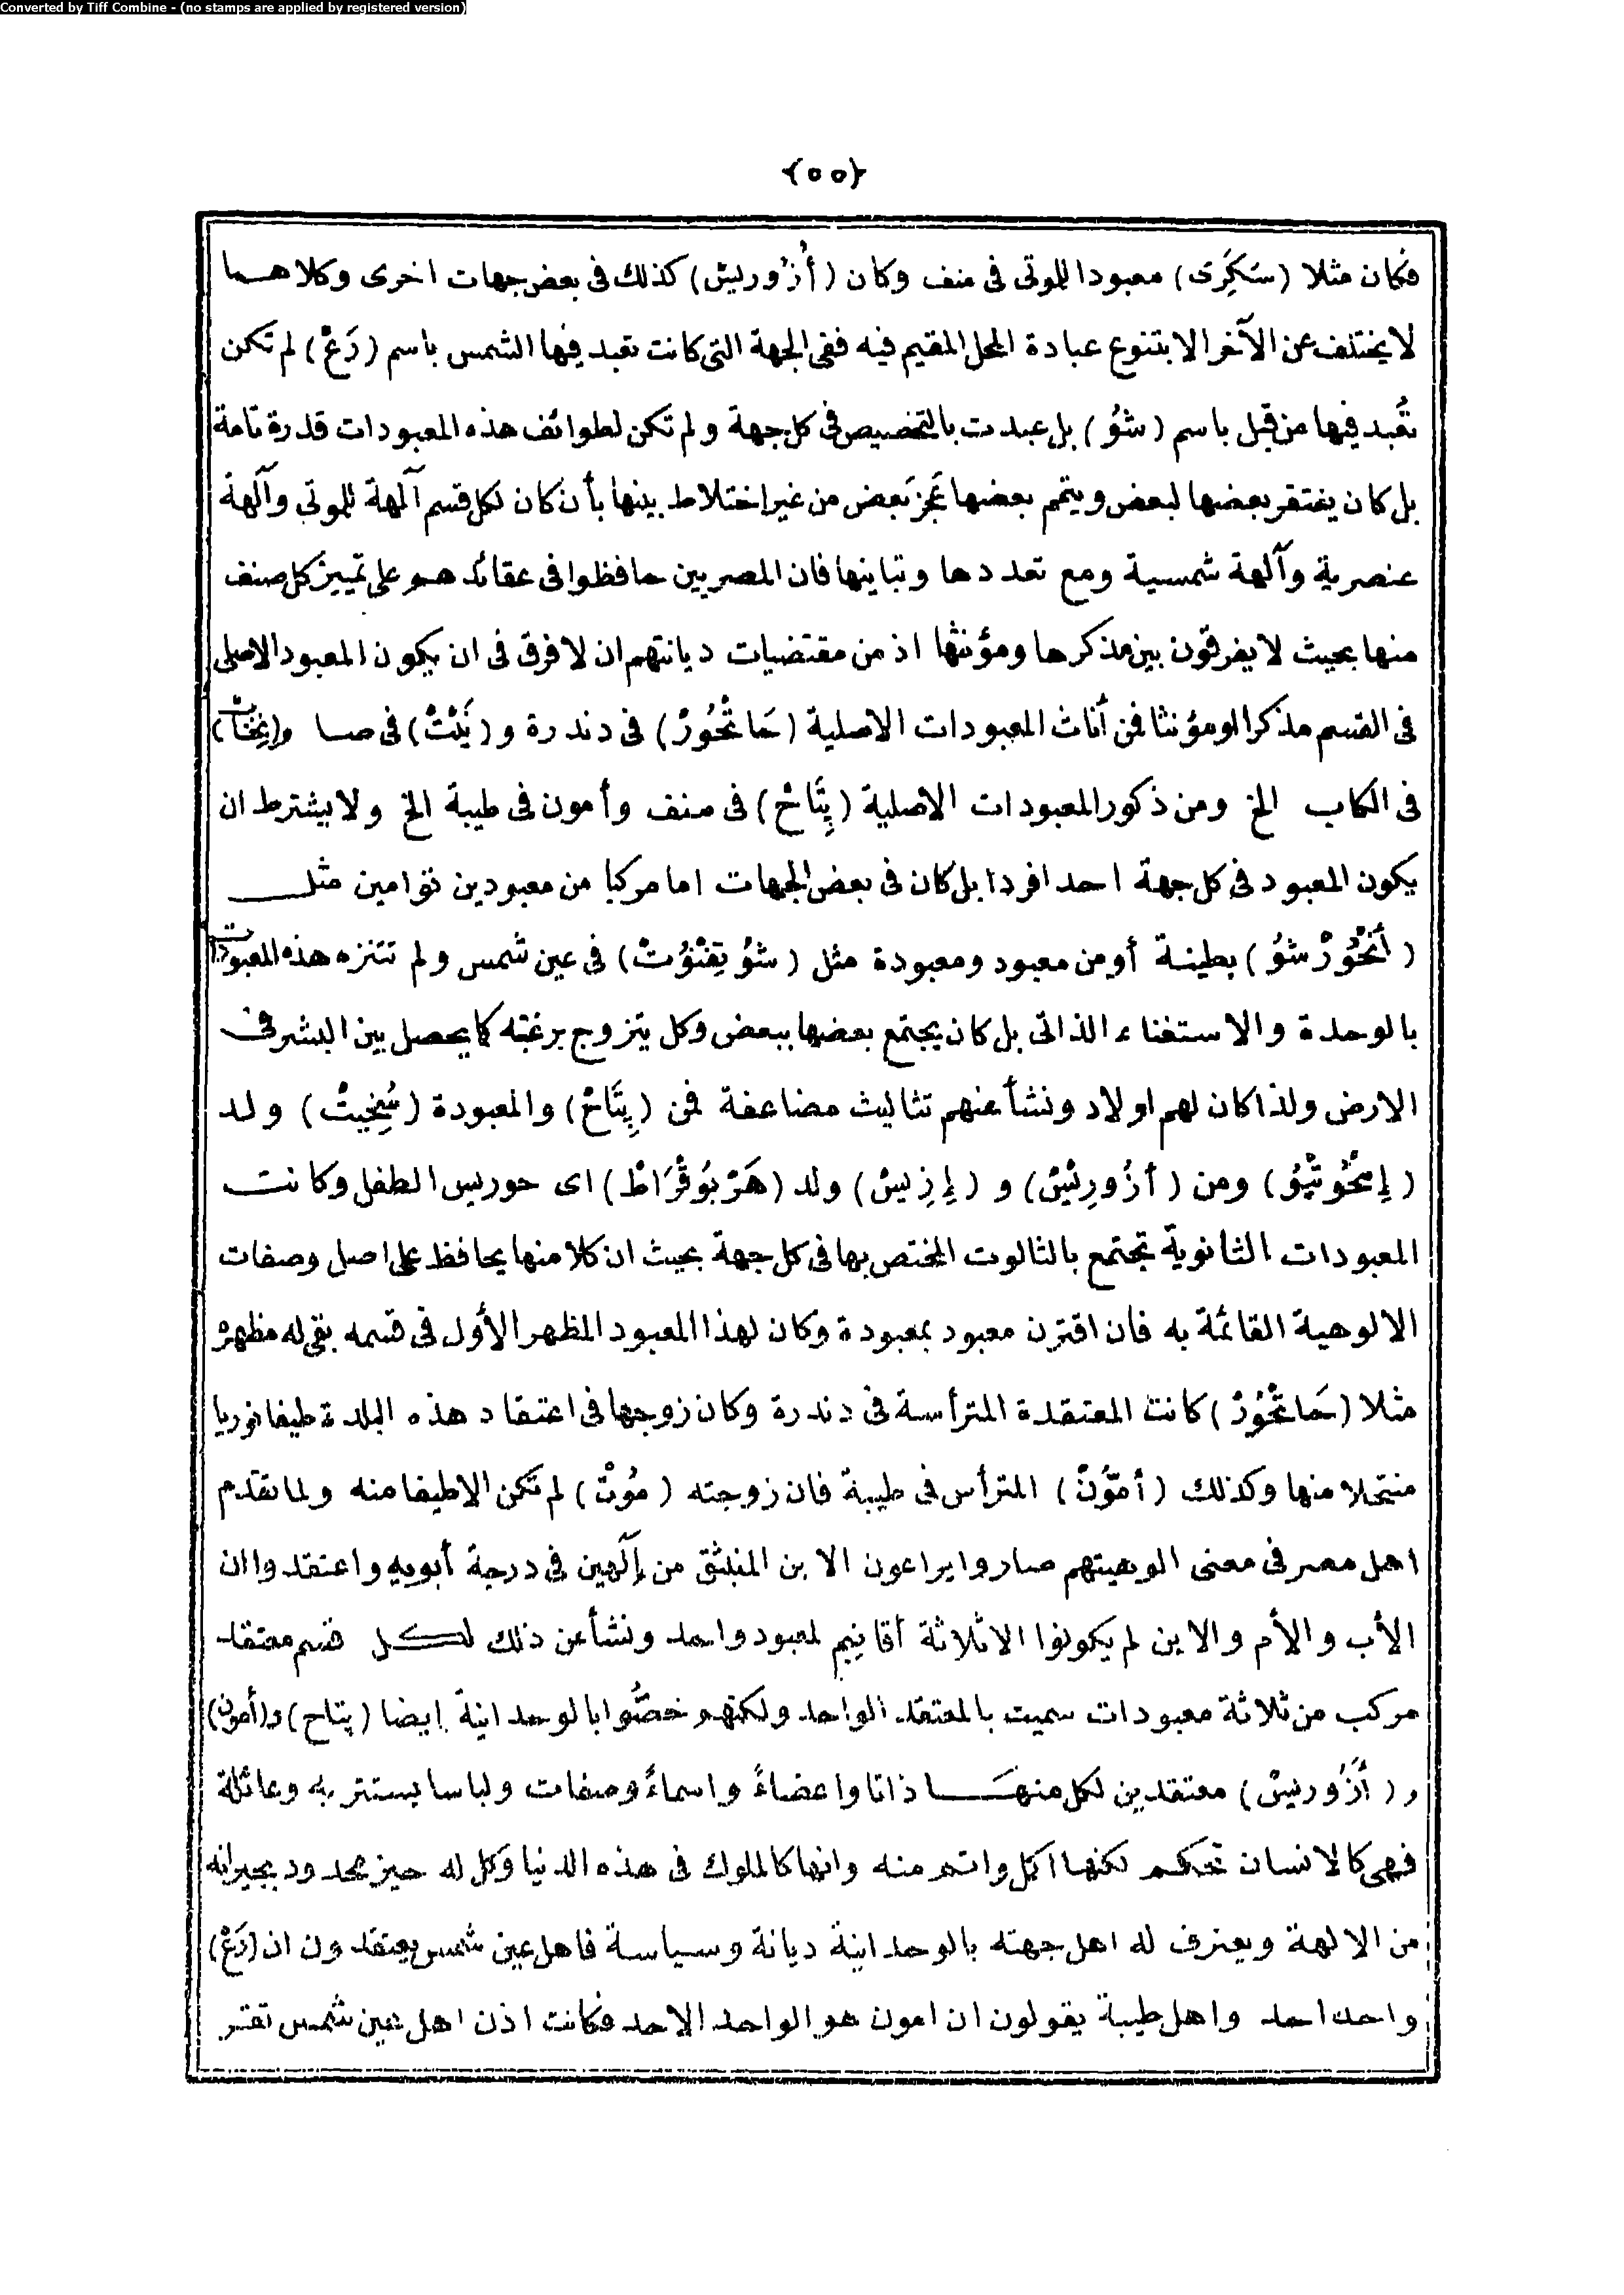 Converted by Tiff Combine - (no stamps are applied by registered version)
{٥٥}
فكان مثلا (سَكَرِى) معبودا للموتى فى منف وكان (أُزُوريس) كذلك فى بعض جهات اخرى وكلاهما
لا يختلف عن الآخر الا بتنوع عبادة المحل المقيم فيه ففى الجهة التى كانت تعبد فيها الشمس باسم (رَعْ) لم تكن
تُعبد فيها من قبل باسم (شُو) بل عبدت بالتخصيص فى كل جهة ولم تكن لطوائف هذه المعبودات قدرة تامة
بل كان يفتقر بعضها لبعض ويتمم بعضها عَجزَ بَعض من غير اختلاط بينها بأن كان لكل قسم آلهة للموتى وآلهة
عنصرية وآلهة شمسية ومع تعددها وتباينها فان المصريين حافظوا فى عقائدهم على تمييز كل صنف
منها بحيث لا يفرقون بين مذكرها ومؤنثها اذ من مقتضيات ديانتهم ان لا فرق فى ان يكون المعبود الاصلى
فى القسم مذكرا او مؤنثا فمن أناث المعبودات الاصلية (حَاتْحُورْ) فى دندرة و (نَيْتْ) فى صا و(نِخَابْ)
فى الكاب الخ ومن ذكور المعبودات الاصلية (پِتَاحْ) فى منف وأمون فى طيبة الخ ولا يشترط ان
يكون المعبود فى كل جهة احد افردا بل كان فى بعض الجهات اما مركبا من معبودين توامين مثل
(أَنْحُورْ شُو) بطينة أو من معبود ومعبودة مثل (شُو تِفْنُوتْ) فى عين شمس ولم تتنزه هذه المعبودات
بالوحدة والاستغناء الذاتى بل كان يجتمع بعضها ببعض وكل يتزوج برغبته كما يحصل بين البشر فى
الارض ولذا كان لهم اولاد ونشأ عنهم تثاليث مضاعفة فمن (پِتَاحْ) والمعبودة (سُخِيتْ) ولد
(إِمْحُوتْپُو) ومن (أزُورِيْسْ) و (إِزِيسْ) ولد (هَرْبُوقْرَاطْ) اى حوريس الطفل وكانت
المعبودات الثانوية تجتمع بالثالوت المختص بها فى كل جهة بحيث ان كلا منها يحافظ على اصل وصفات
الالوهية القائمة به فان اقترن معبود بمعبودة وكان لهذا المعبود المظهر الأول فى قسمه بقى له مظهره
مثلا (حَاتْحُورْ) كانت المعتقدة المترأسة فى دندرة وكان زوجها فى اعتقاد هذه البلدة طيفا نوريا
منتحلا منها وكذلك (أمُونْ) المترأس فى طيبة فان زوجته (مُوتْ) لم تكن الا طيفا منه ولما تقدم
اهل مصر فى معنى الوهيتهم صاروا يراعون الابن المنبثق من إلَهين فى درجة أبويه واعتقدوا ان
الأب والأم والابن لم يكونوا الا ثلاثة أقانيم لمعبود واحد ونشأ عن ذلك لكل قسم معتقد
مركب من ثلاثة معبودات سميت بالمعتقد الواحد ولكنهم خصُّوا بالوحدانية ايضا (پتاح) و(أمون)
و (أَزُوريسْ) معتقدين لكل منها ذاتا واعضاءً واسماءً وصفات ولباسا يستتر به وعائلة
فهى كالانسان تحكم لكنها اكل واتم منه وانها كالملوك فى هذه الدنيا وكل له حيز محدود بجيرانه
من الالهة ويعترف له اهل جهته بالوحدانية ديانة وسياسة فاهل عين شمس يعتقدون ان (رَعْ)
واحد احد واهل طيبة يقولون ان امون هو الواحد الاحد فكانت اذن اهل عين شمس تقر